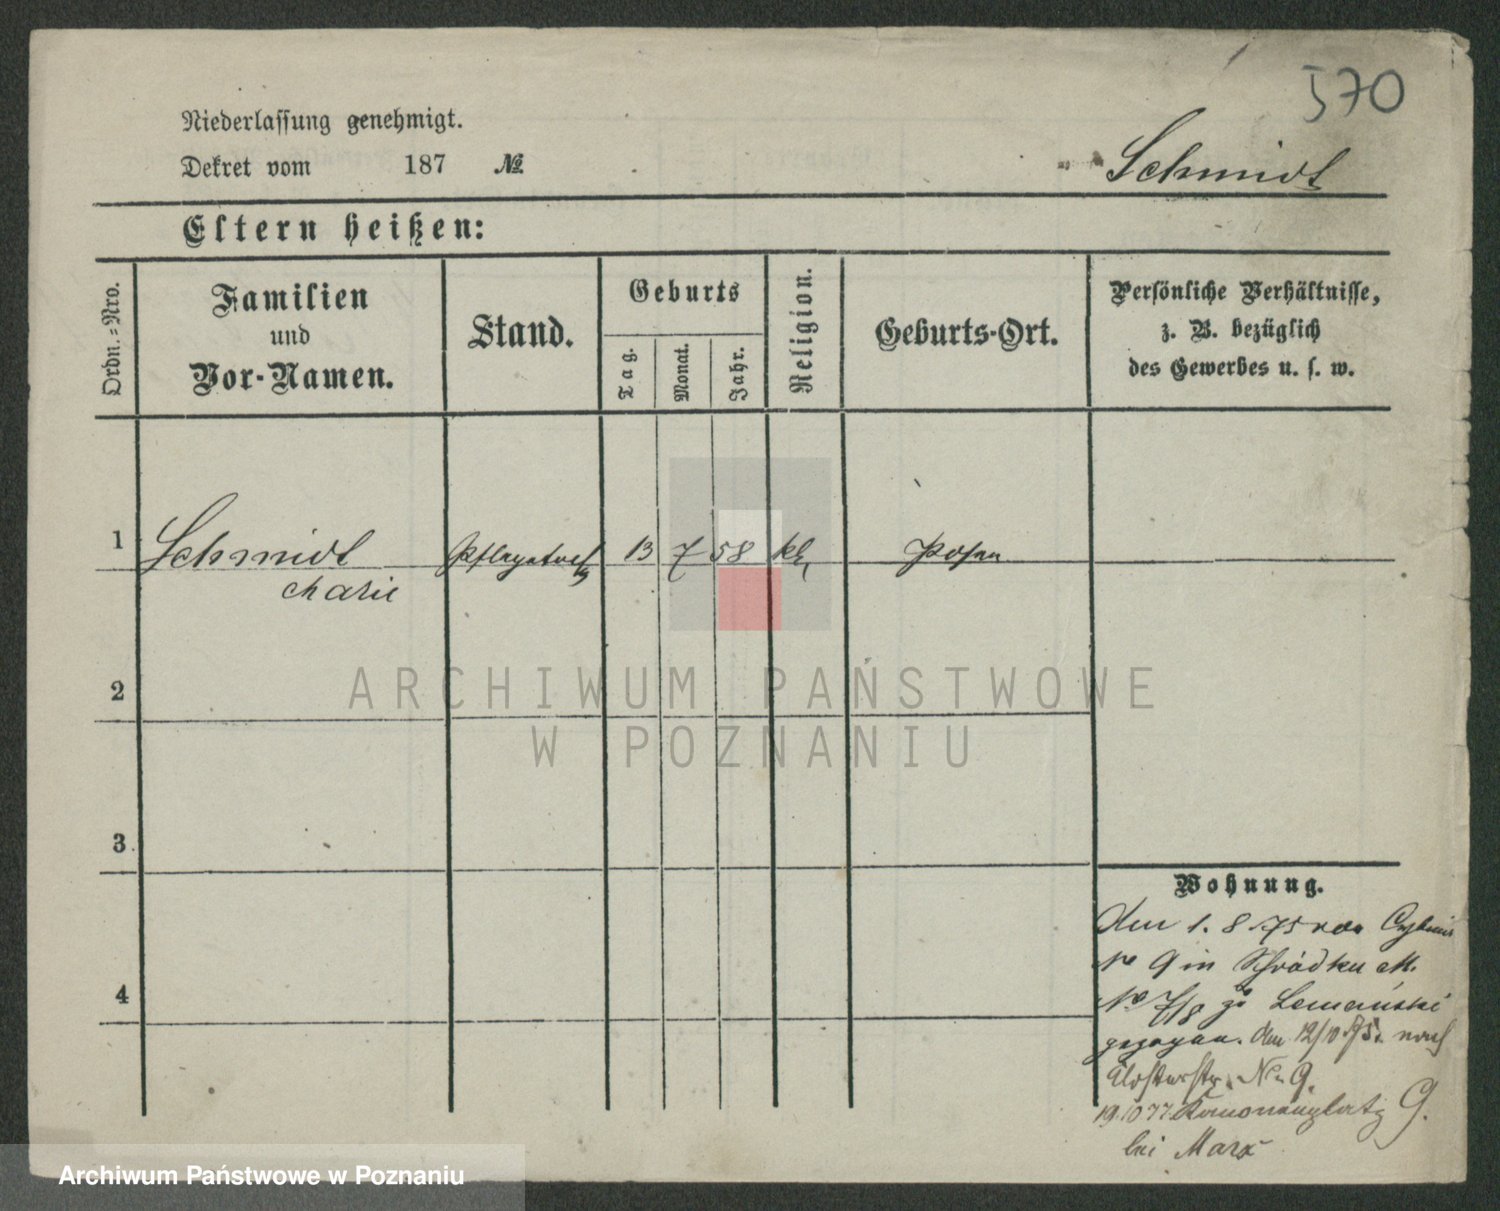 570
Niederlassung genehmigt.
Dekret vom 187 №
Schmidt
Eltern heißen:
Ordn.=Nro.
Familien
und
Vor-Namen.
Stand.
Geburts
Tag.
Monat.
Jahr.
Religion.
Geburts-Ort.
Persönliche Verhältnisse,
z. B. bezüglich
des Gewerbes u. s. w.
1 Schmidt 13 7 58 kth Posen
Marie
ARCHIWUM PAŃSTWOWE
2
W POZNANIU
3
Wohnung.
den 1. 8. 75 von
No 9 in Schrodka M.
4
No 7/8 zu
gezogen. den 12/10. 75. nach
Klosterstr. No. 9.
19.10 77. Kanonenplatz 9.
bei Marx
Archiwum Państwowe w Poznaniu